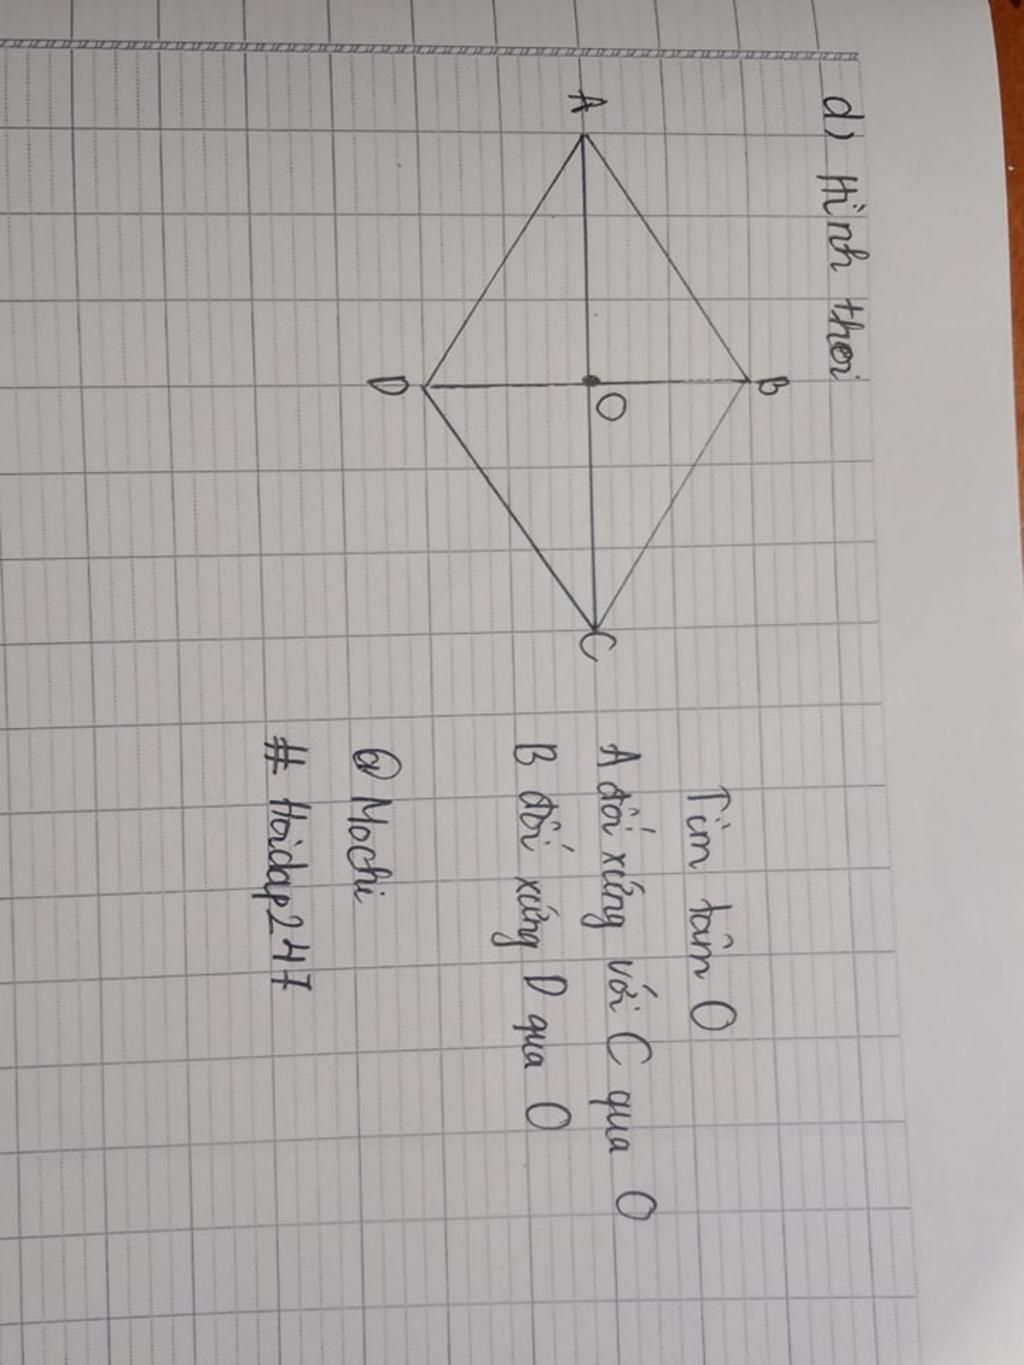 d) Hình thoi
A
B
O
D
C
Tìm tâm O
A đối xứng với C qua O
B đối xứng D qua O
@Mochi
# Hoidap247